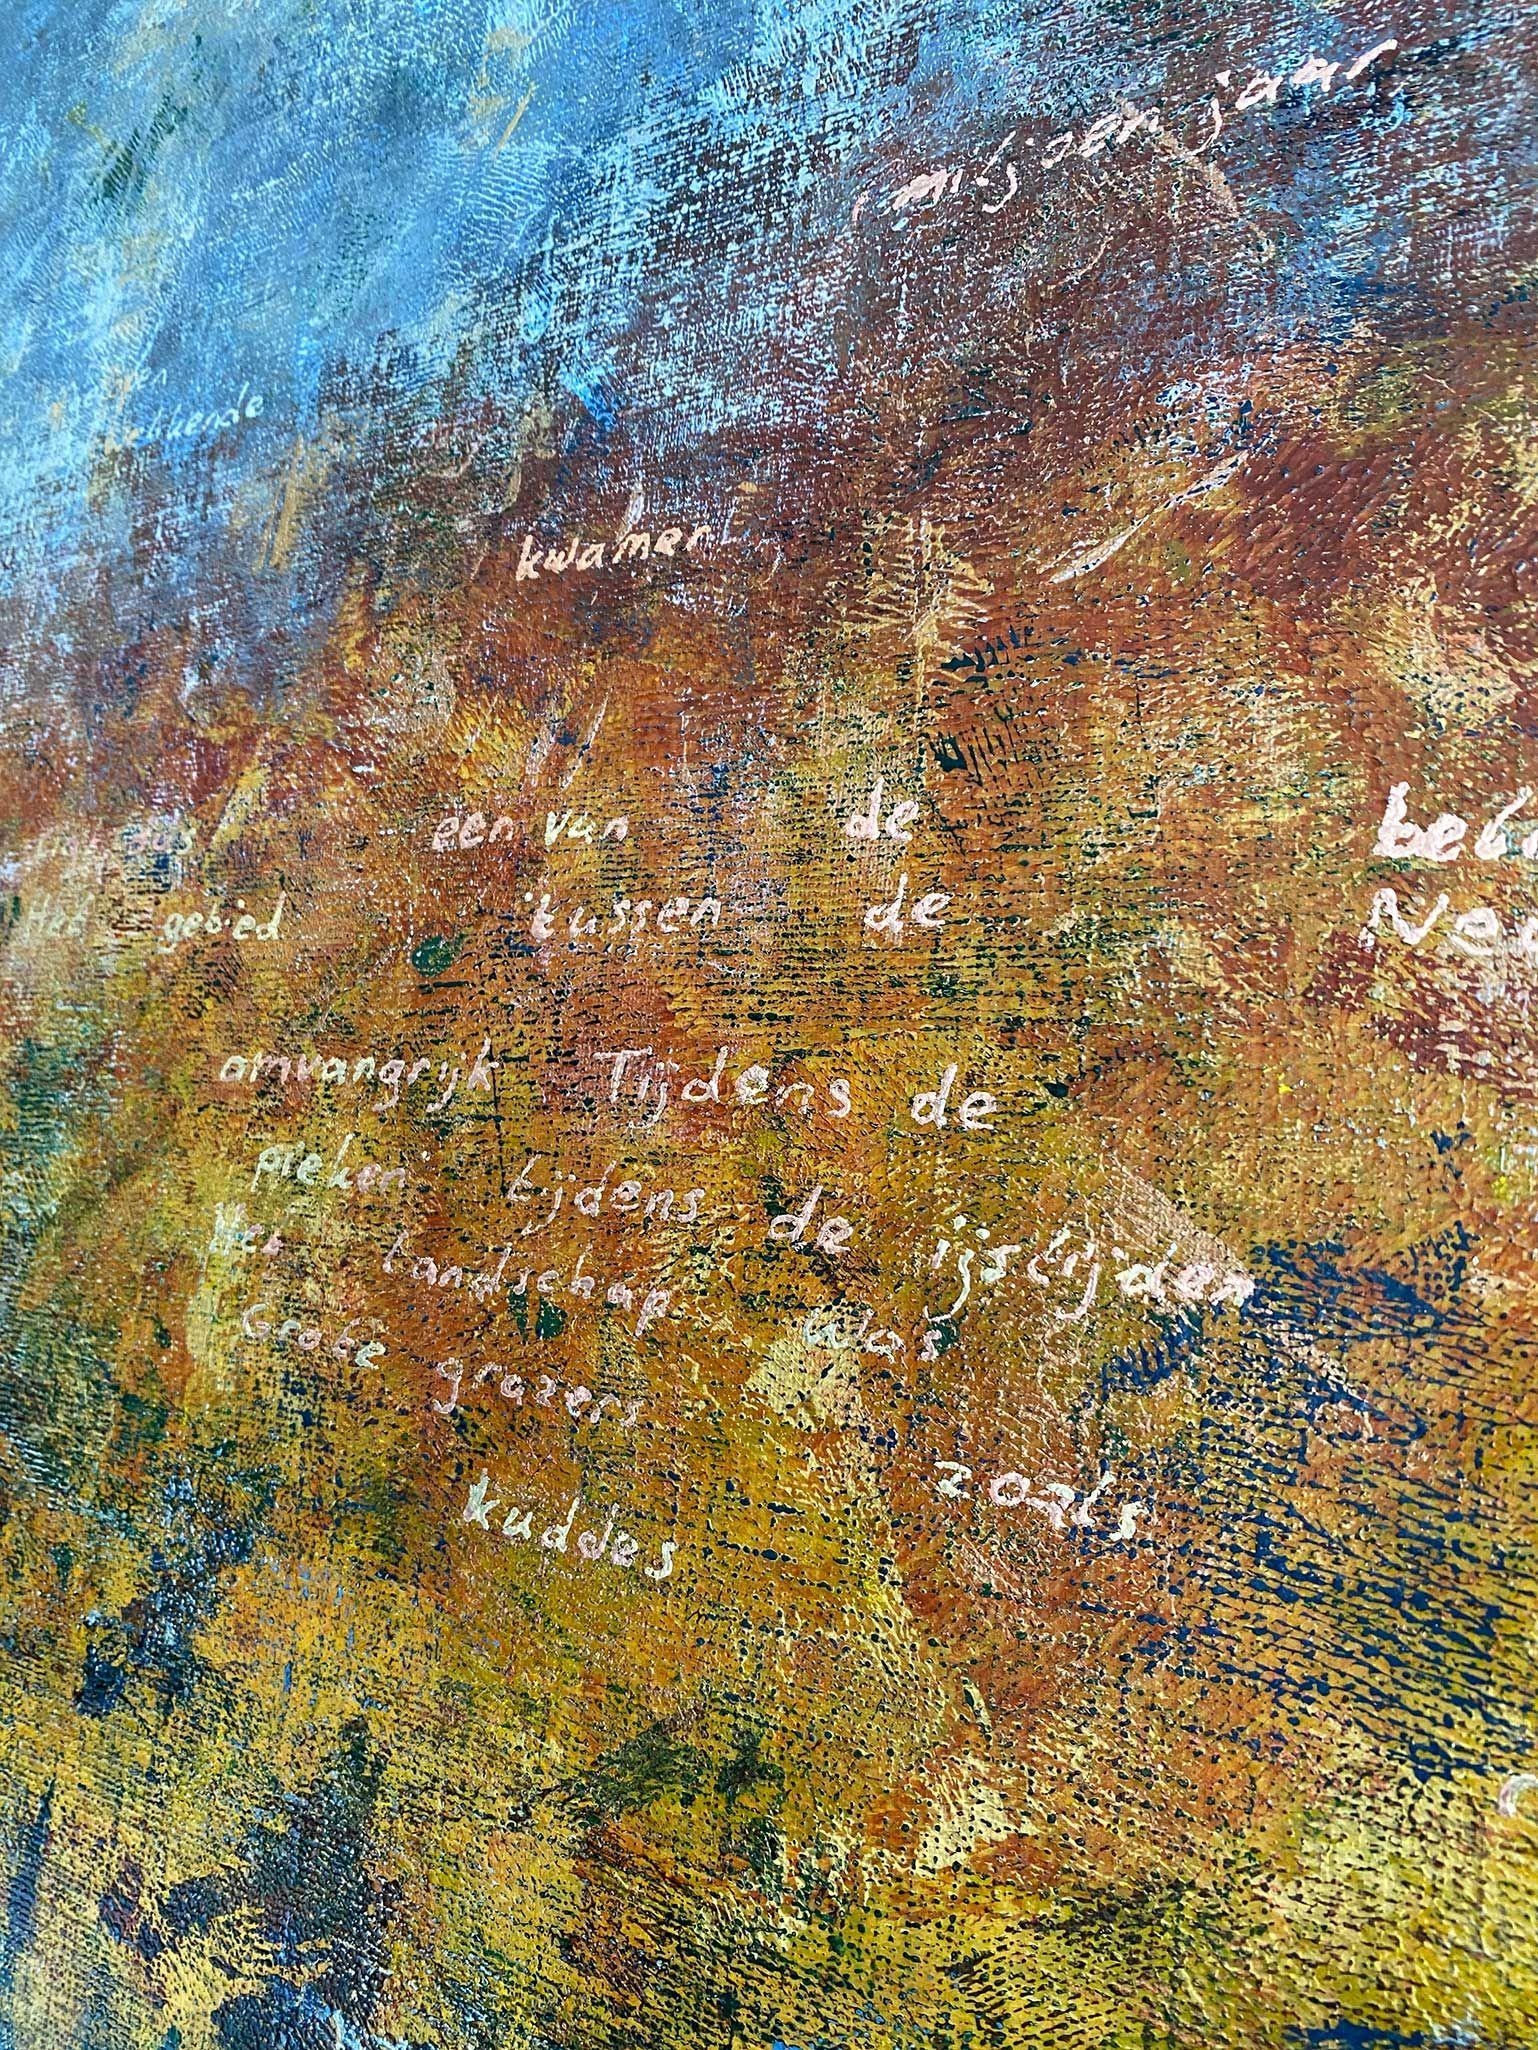 miljoen jaar
kwamen
een van de
Het gebied tussen de
omvangrijk Tijdens de
pieken tijdens de ijstijden
Het landschap was
Grote grazers zoals
kuddes